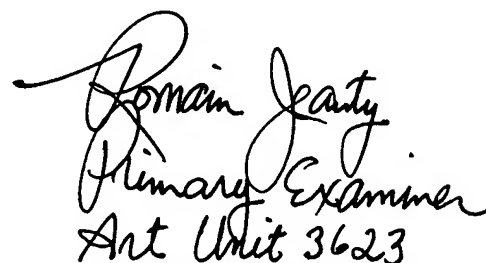 Romain Jeanty
Primary Examiner
Art Unit 3623